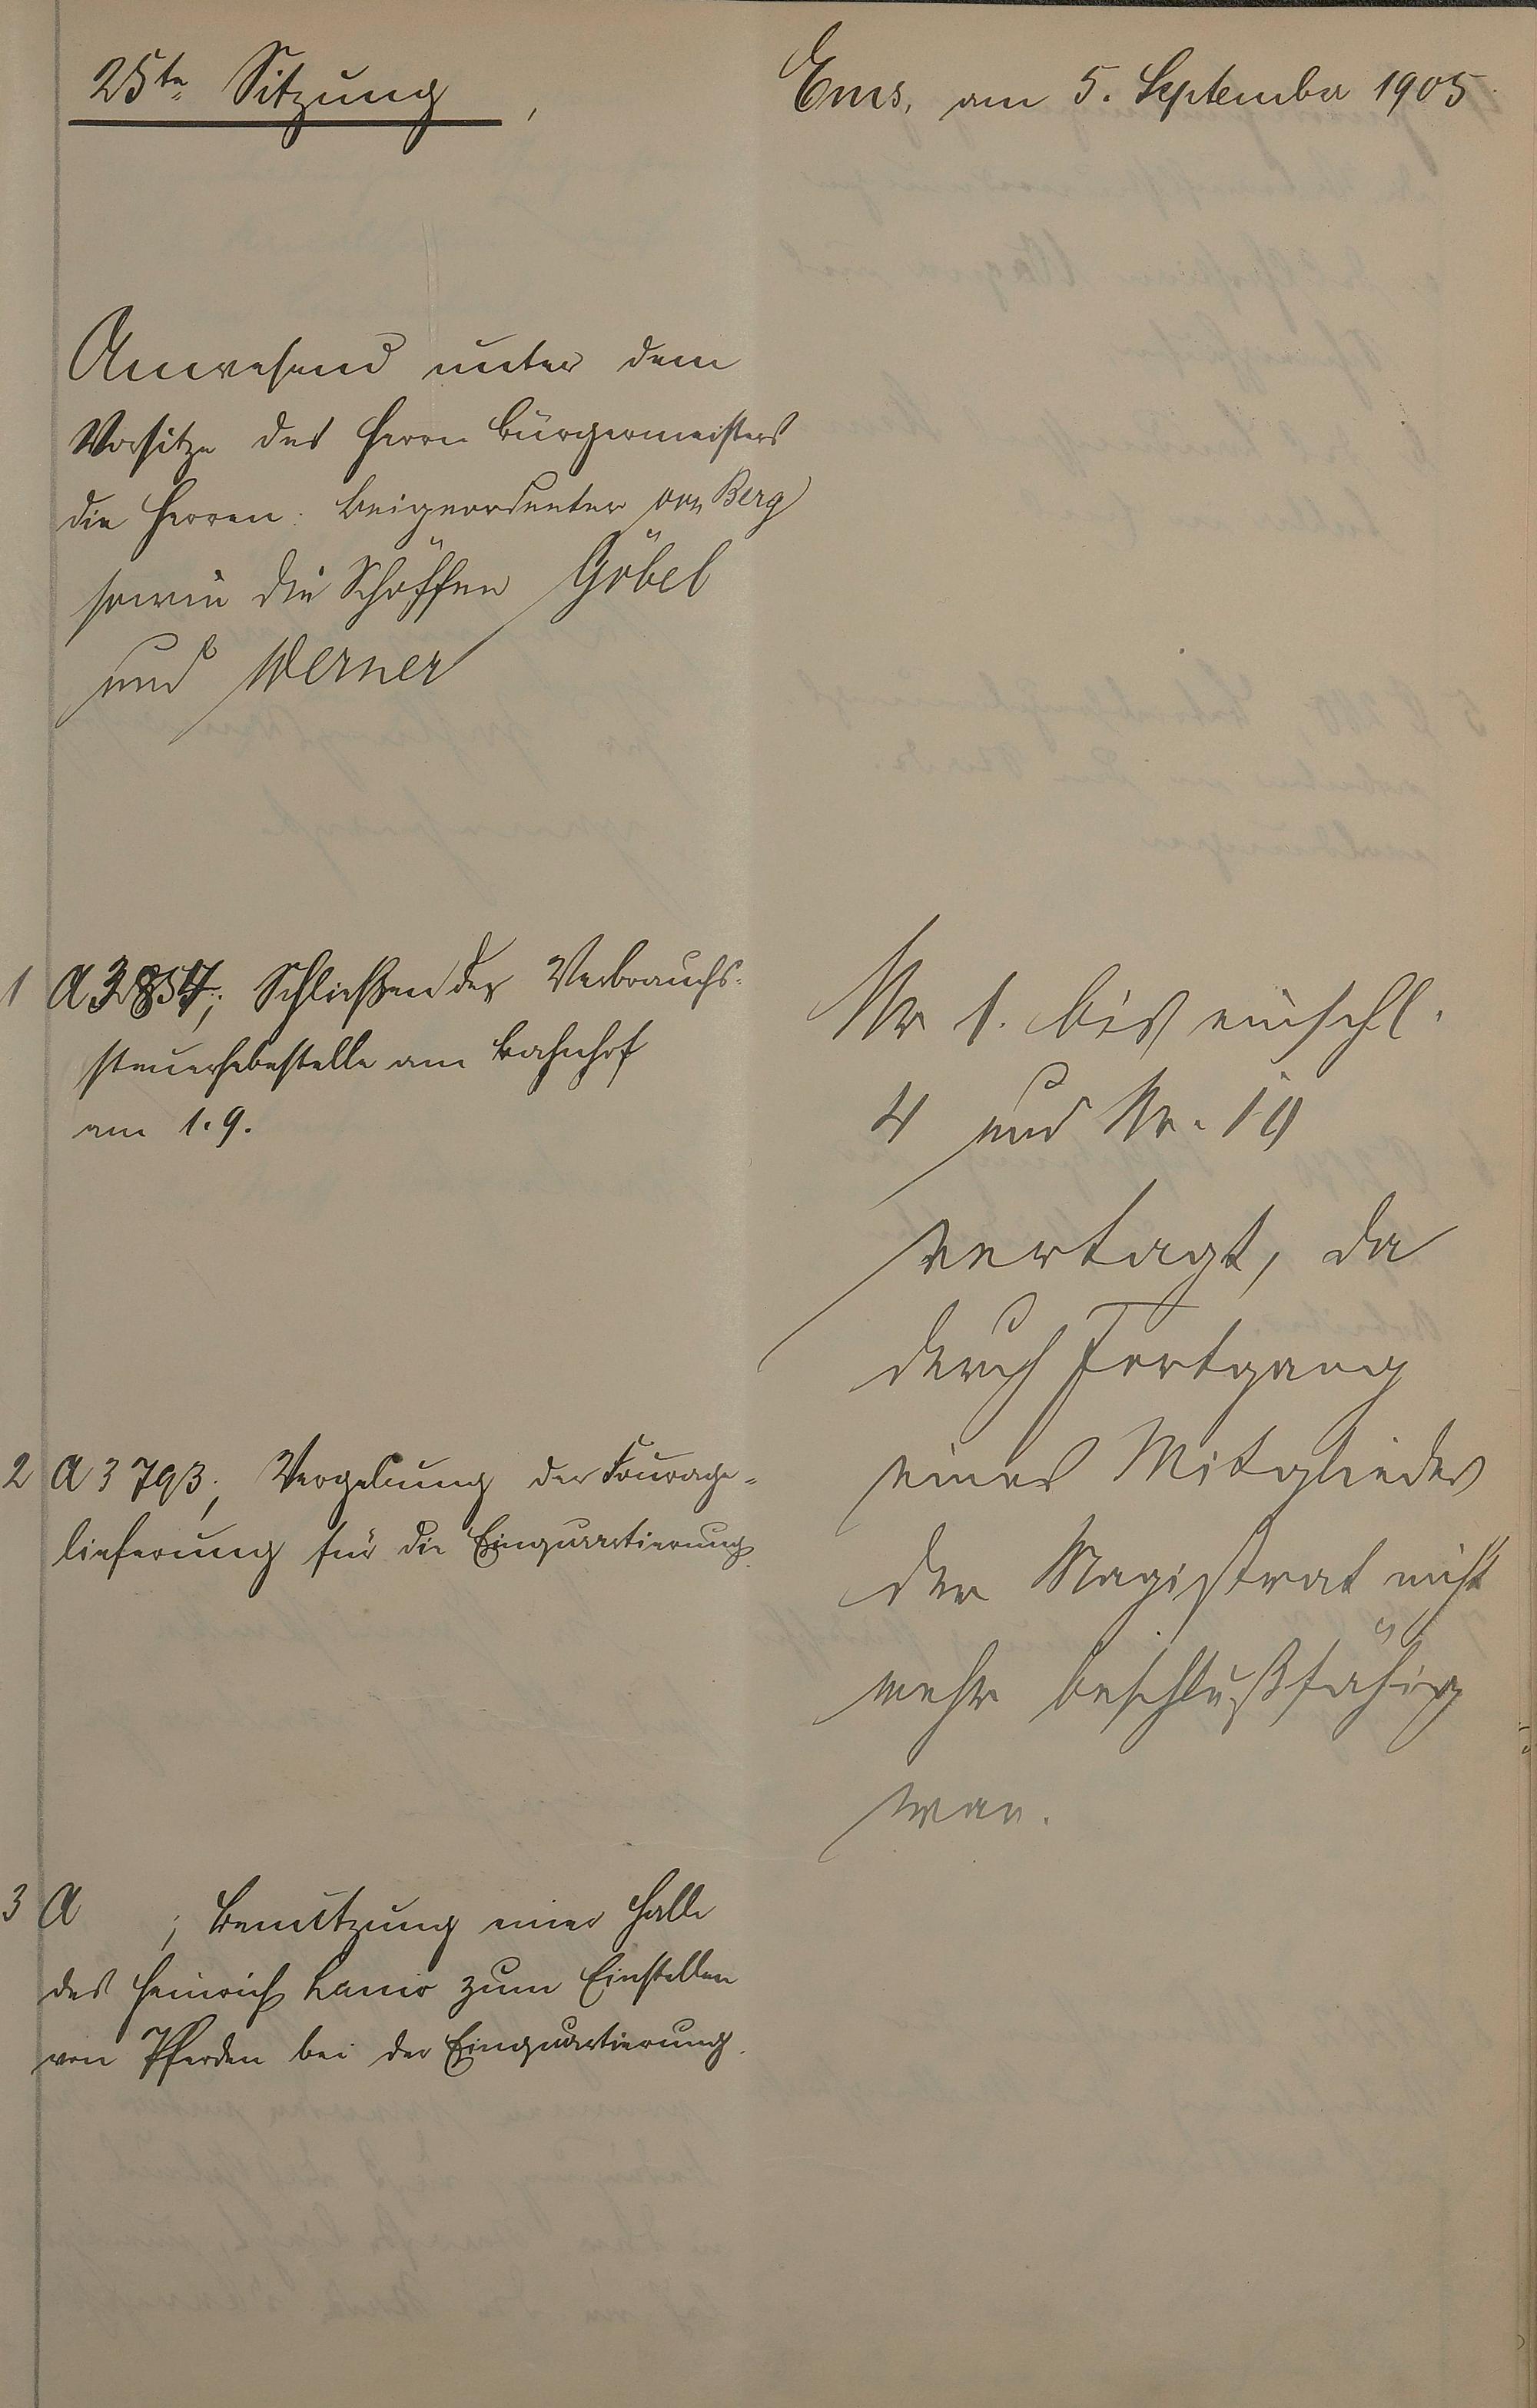 25te Sitzung,
Ems, am 5. September 1905.
Anwesend unter dem
Vorsitze des Herrn Bürgermeisters
die Herren: Beigeordneter von Berg
sowie die Schöffen Göbel
und Werner
1 A 3854; Schließen der Verbrauchs-
steuerhebestelle am Bahnhof
am 1.9.
2 A 3793; Vergebung der Fourage-
lieferung für die Einquartierung.
3 A ; Benutzung einer Halle
des Heinrich Lanio zum Einstellen
von Pferden bei der Einquartierung.
Nr 1. bis einschl.
4 und Nr. 10
vertagt, da
durch Fortgang
eines Mitgliedes
der Magistrat nicht
mehr beschlußfähig
war.